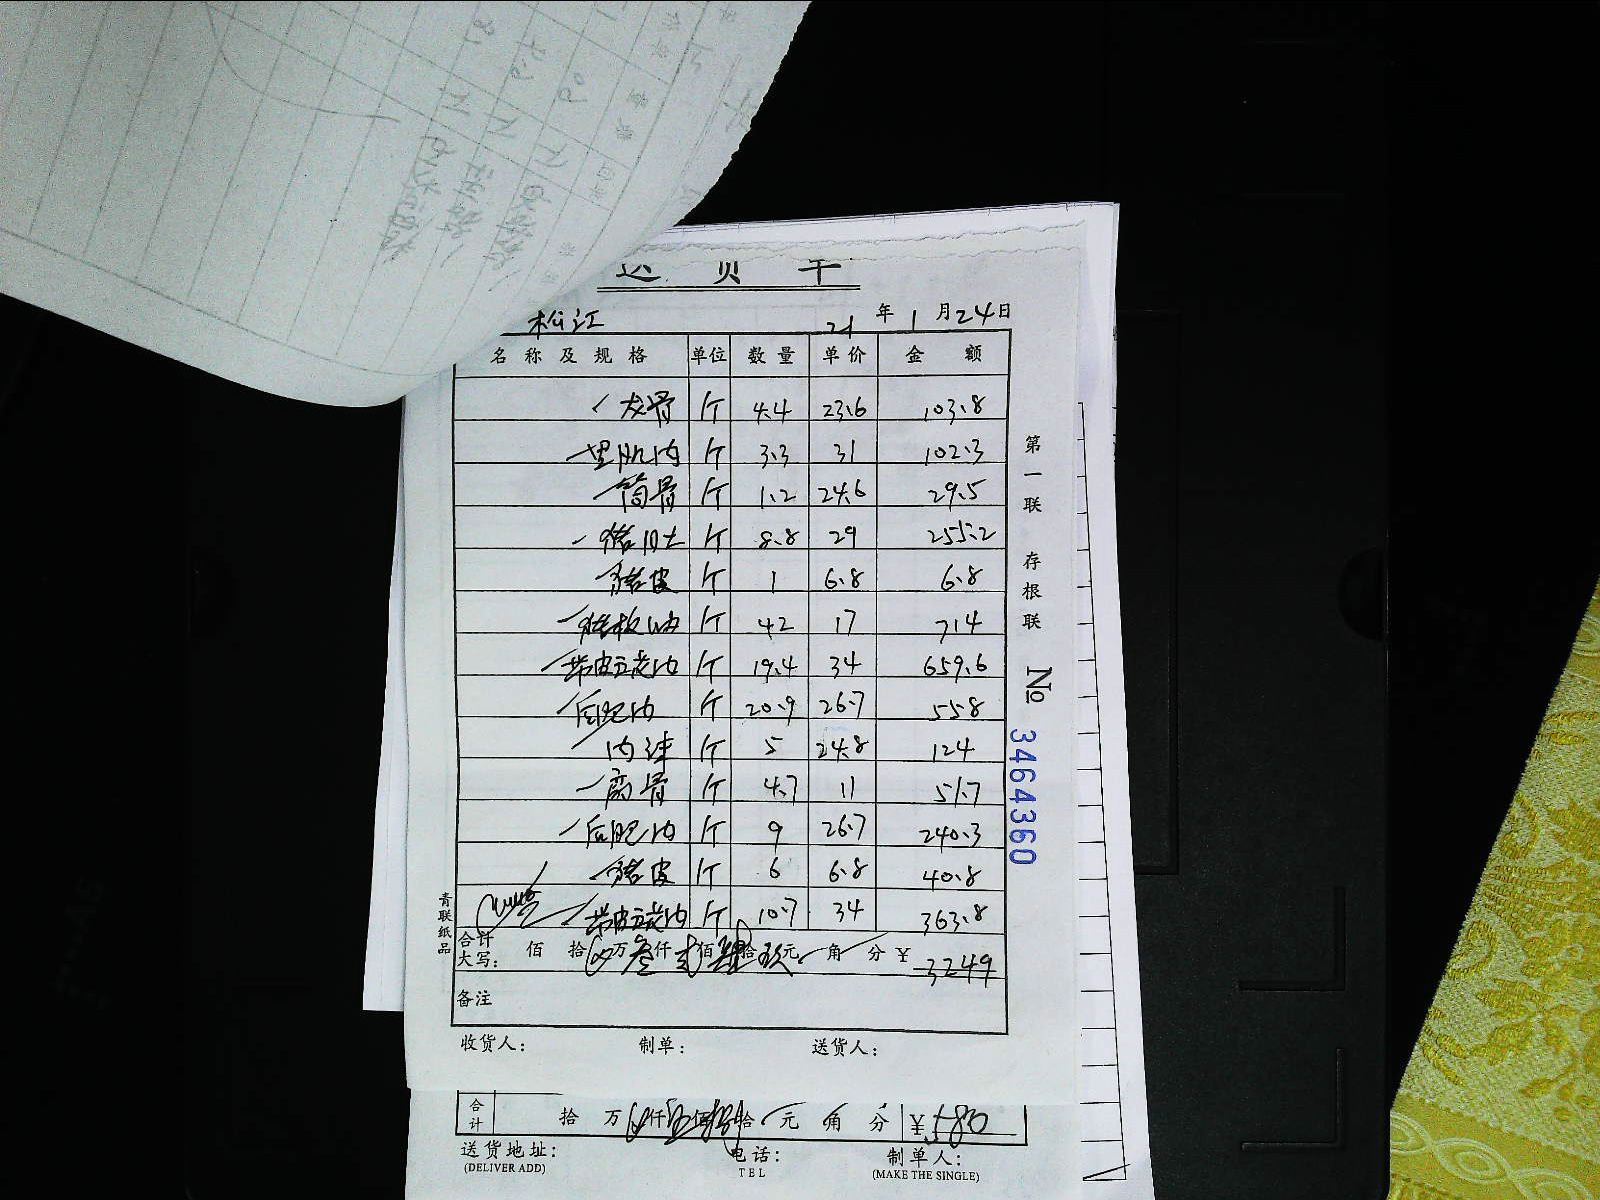 送货单
松江 21年1月24日
名称及规格 单位 数量 单价 金额
龙骨 斤 4.4 23.6 103.8
里肌肉 斤 3.3 31 102.3
筒骨 斤 1.2 24.6 29.5
猪肚 斤 8.8 29 255.2
猪皮 斤 1 6.8 6.8
猪板油 斤 42 17 714
带皮五花肉 斤 19.4 34 659.6
后肥肉 斤 20.9 26.7 558
肉沫 斤 5 24.8 124
扇骨 斤 4.7 11 51.7
后肥肉 斤 9 26.7 240.3
猪皮 斤 6 6.8 40.8
带皮五花肉 斤 10.7 34 363.8
合计大写: 佰 拾 万叁仟贰佰肆拾玖元 角 分 ¥ 3249
备注
收货人: 制单: 送货人:
第一联 存根联
No 3464360
青联纸品
合计 拾 万 仟伍佰捌拾 元 角 分 ¥580
送货地址: 电话: 制单人:
(DELIVER ADD) TEL (MAKE THE SINGLE)